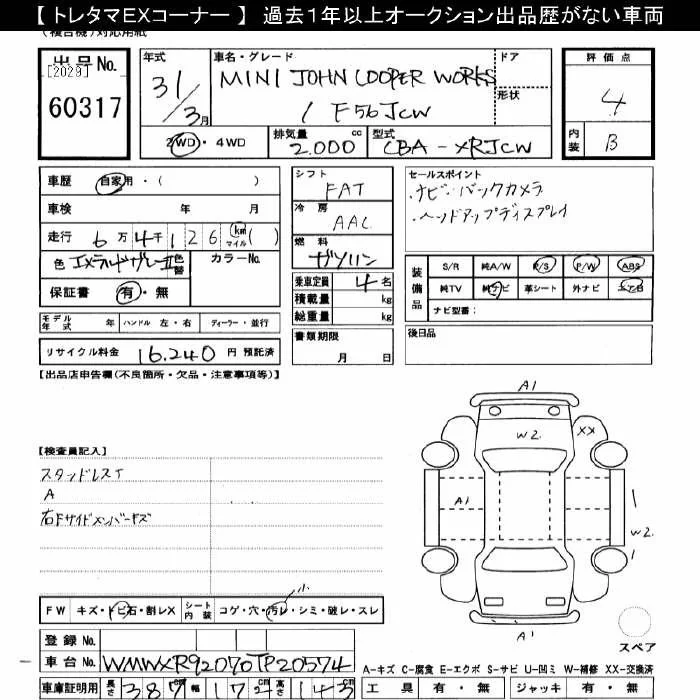 【 トレタマEXコーナー 】 過去1年以上オークション出品歴がない車両
(複合機)対応用紙
出品No.
[2029]
60317
年式
31/3月
車名・グレード
MINI JOHN COOPER WORKS
/ F56JCW
ドア
形状
評価点
4
内装 B
2WD・4WD
排気量 2.000 cc
型式 CBA-XRJCW
車歴 自家用・( )
車検 年 月
走行 6万4千126 km マイル ( )
色 色替 カラーNo.
保証書 有・無
モデル年式 年 ハンドル 左・右 ディーラー・並行
リサイクル料金 16.240 円 預託済
シフト
FAT
冷房
AAC
燃料
ガソリン
乗車定員 4 名
積載量 kg
総重量 kg
書類期限
月 日
セールスポイント
・ナビ・バックカメラ
・ヘッドアップディスプレイ
装備品
S/R 純A/W P/S P/W ABS
純TV 純ナビ 革シート 外ナビ エアB
ナビ型番:
後日品
【出品店申告欄(不良箇所・欠品・注意事項等)】
【検査員記入】
A
右Fサイドメンバーキズ
FW キズ・トビ石・割レX シート内装 コゲ・穴・汚レ・シミ・破レ・スレ
小
登録 No.
車台 No. WMWXR92070TP20574
車庫証明用 長さ 387 cm 幅 172 cm 高さ 143 cm
A1
W2
XX
A1
W2
A1
スペア
A-キズ C-腐食 E-エクボ S-サビ U-凹ミ W-補修 XX-交換済
工具 有・無 ジャッキ 有・無